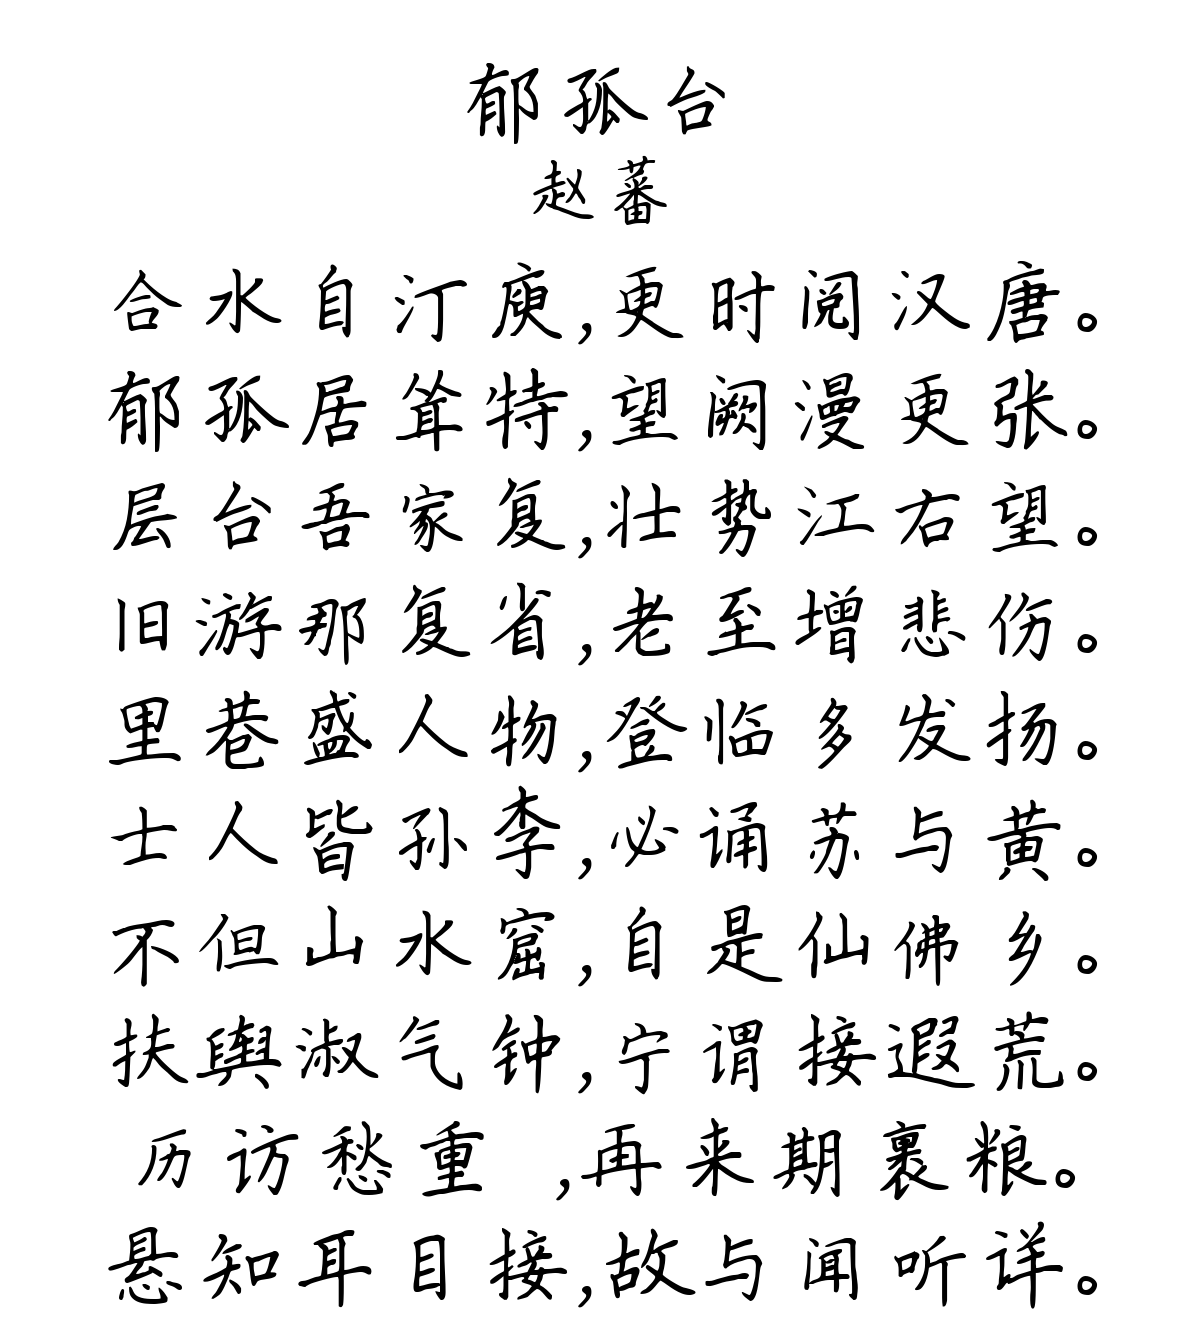 郁孤台
赵蕃
合水自汀庾,更时阅汉唐。
郁孤居耸特,望阙漫更张。
层台吾家复,壮势江右望。
旧游那复省,老至增悲伤。
里巷盛人物,登临多发扬。
士人皆孙李,必诵苏与黄。
不但山水窟,自是仙佛乡。
扶舆淑气钟,宁谓接遐荒。
历访愁重 ,再来期裹粮。
悬知耳目接,故与闻听详。